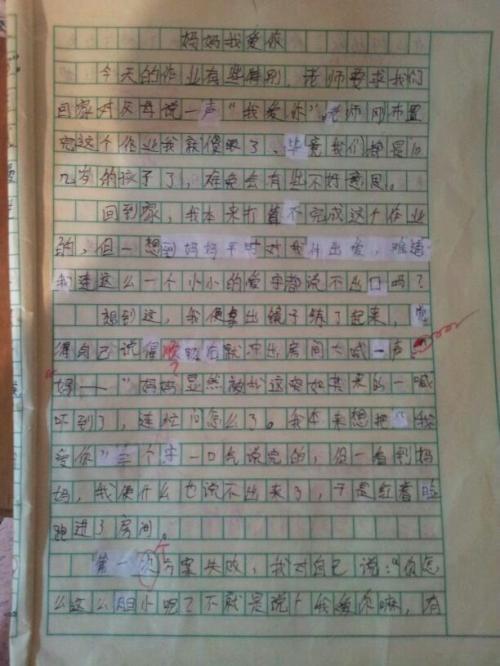 妈妈我爱你
今天的作业有些特别,老师要求我们
回家对父母说一声“我爱你”。老师刚布置
完这个作业我就傻眼了,毕竟我们都是十
几岁的孩子了,难免会有些不好意思。
回到家,我本来打算不完成这个作业
的,但一想到妈妈平时对我付出爱,难道
我连这么一个小小的爱字都说不出口吗?
想到这,我便拿出镜子练了起来,觉
得自己说得顺口后就冲出房间大喊一声
妈——”妈妈显然被我这突如其来的一喊
吓到了,连忙问怎么了。我本来想把“我
爱你”三个字一口气说完的,但一看到妈
妈,我便什么也说不出来了,于是红着脸
跑进了房间。
第一次方案失败,我对自己说:“你怎
么这么胆小呢?不就是说个我爱你嘛,有